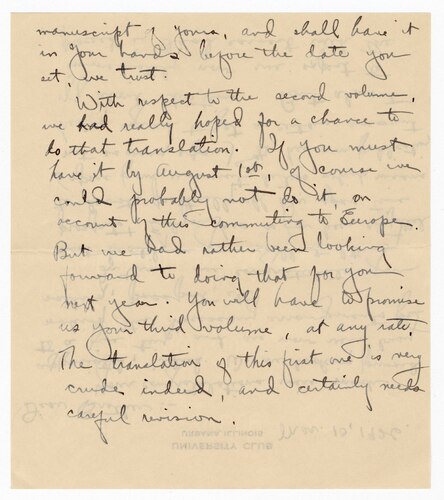 manuscript of yours, and shall have it
in your hands before the date you
set, we trust.
With respect to the second volume,
we had really hoped for a chance to
do that translation. If you must
have it by August 1st, of course we
could probably not do it, on
account of this commuting to Europe.
But we had rather been looking
forward to doing that for you
next year. You will have to promise
us your third volume, at any rate.
The translation of this first one is very
crude indeed, and certainly needs
careful revision.